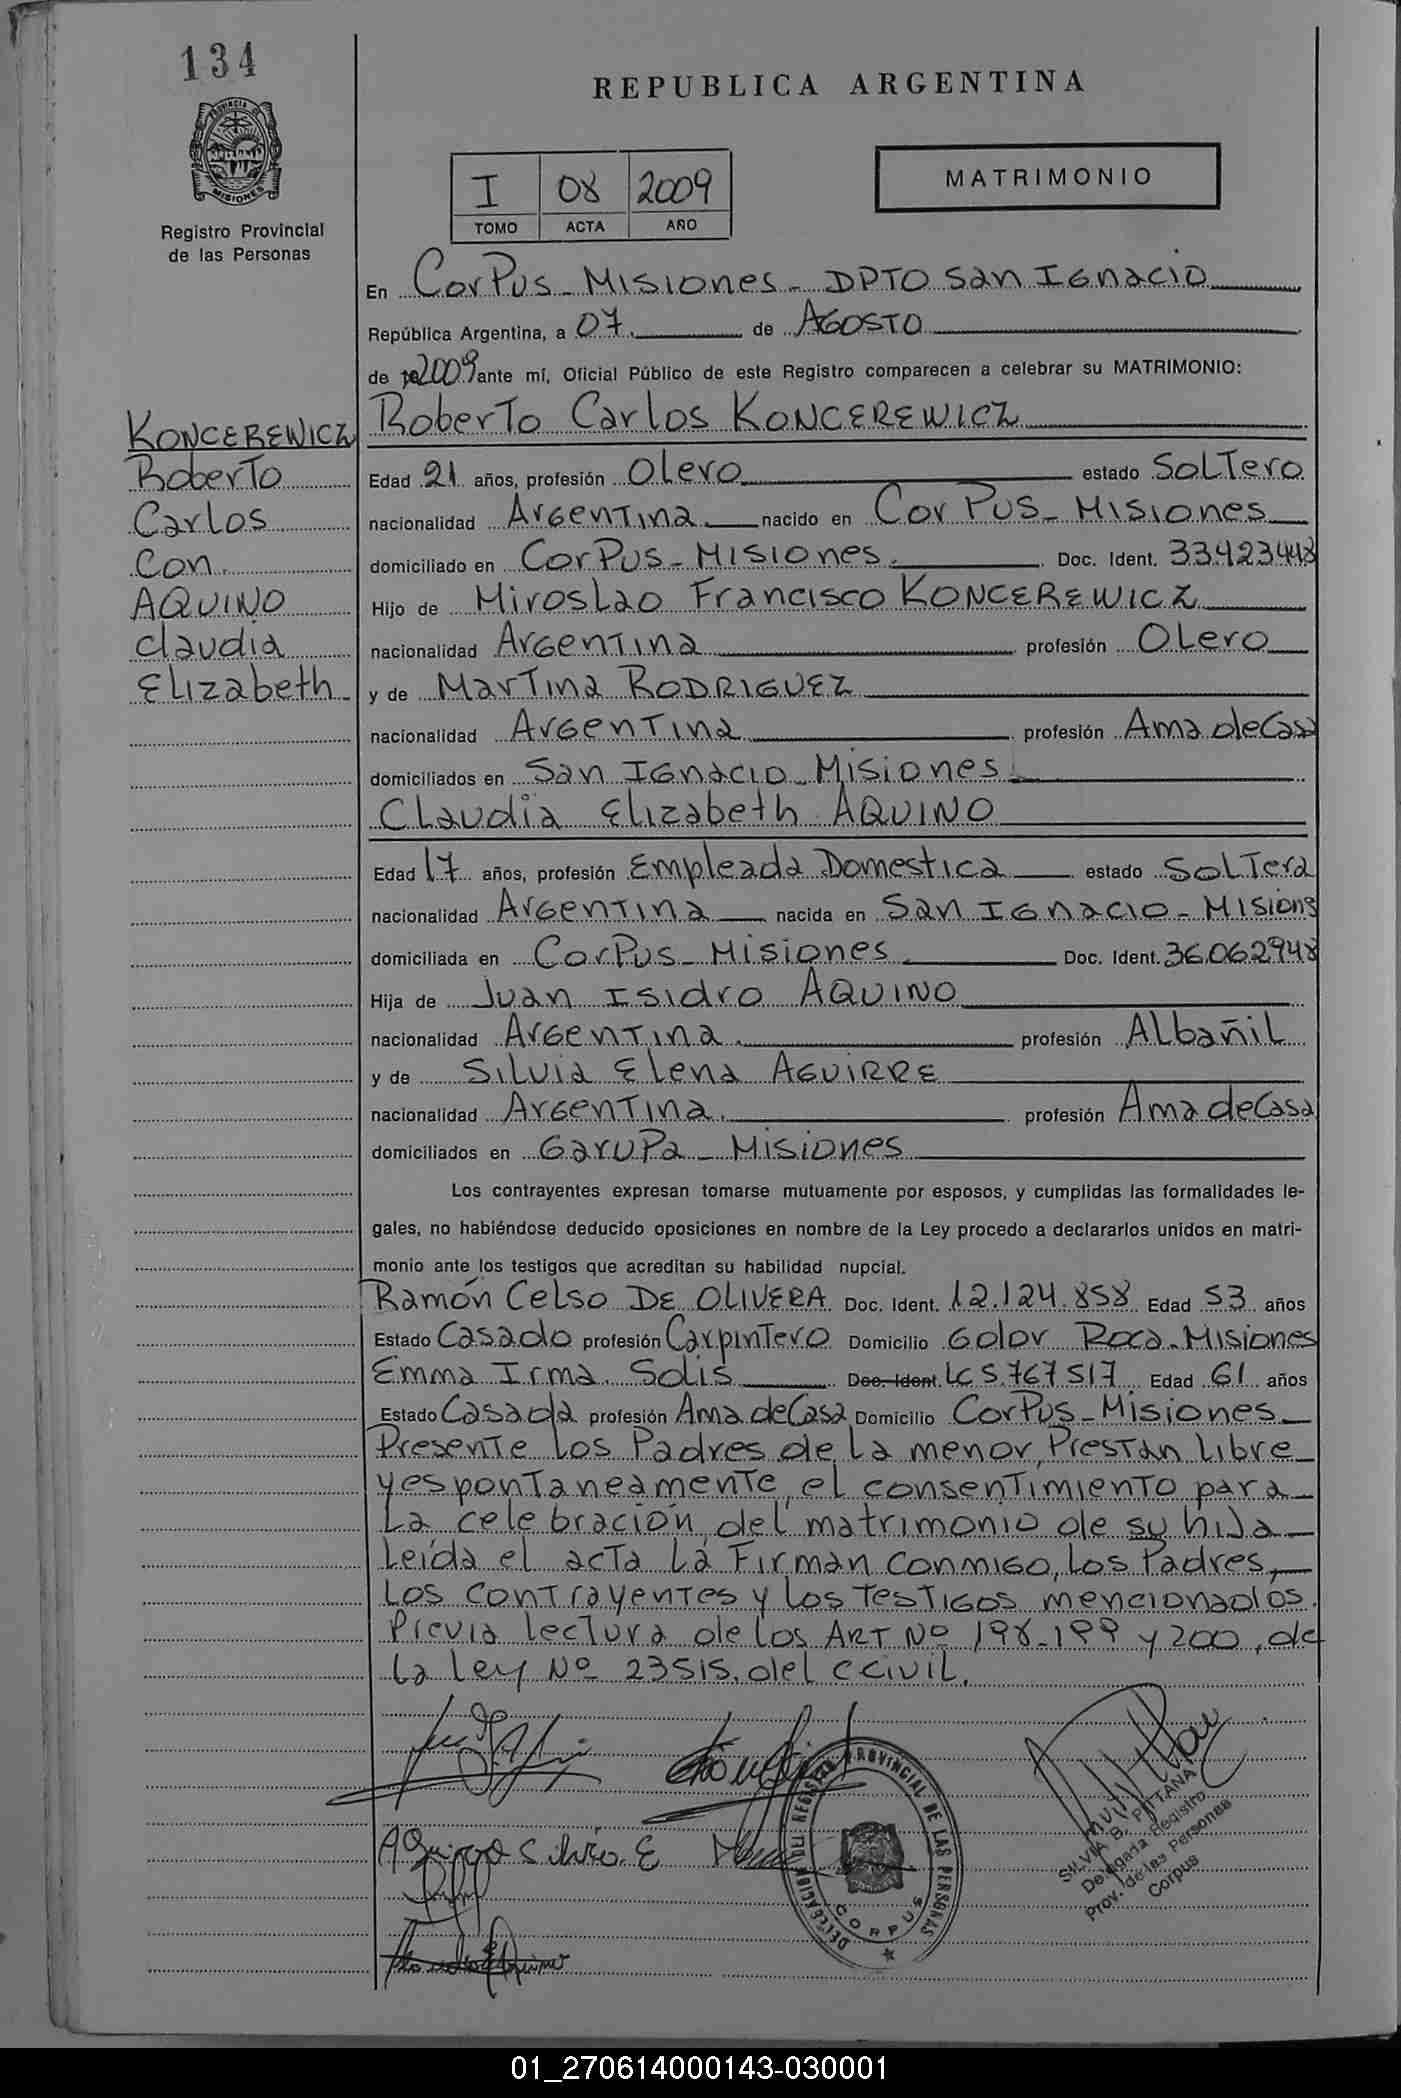 134
PROVINCIA DE
MISIONES
Registro Provincial
de las Personas
REPUBLICA ARGENTINA
I 08 2009
TOMO ACTA AÑO
MATRIMONIO
En CorPus - Misiones - DPTO San Ignacio
República Argentina, a 07 de AGOSTO
de 2009 ante mí, Oficial Público de este Registro comparecen a celebrar su MATRIMONIO:
KONCEREWICZ
Roberto
Carlos
Con
AQUINO
claudia
Elizabeth
Roberto Carlos KONCEREWICZ
Edad 21 años, profesión Olero estado SOLTero
nacionalidad Argentina nacido en CorPus - Misiones
domiciliado en CorPus - Misiones. Doc. Ident. 33.423448
Hijo de Miroslao Francisco KONCEREWICZ
nacionalidad Argentina profesión OLero
y de Martina RODRIGUEZ
nacionalidad Argentina profesión Ama de Casa
domiciliados en San Ignacio - Misiones
Claudia Elizabeth AQUINO
Edad 17 años, profesión Empleada Domestica estado SOLTera
nacionalidad Argentina nacida en San Ignacio - Misions
domiciliada en CorPus - Misiones Doc. Ident. 36.062948
Hija de Juan Isidro AQUINO
nacionalidad Argentina. profesión ALbañiL
y de Silvia Elena AGUIRRE
nacionalidad Argentina. profesión Ama de Casa
domiciliados en Garupa - Misiones
Los contrayentes expresan tomarse mutuamente por esposos, y cumplidas las formalidades le-
gales, no habiéndose deducido oposiciones en nombre de la Ley procedo a declararlos unidos en matri-
monio ante los testigos que acreditan su habilidad nupcial.
Ramón Celso DE OLIVERA Doc. Ident. 12.124.858 Edad 53 años
Estado Casado profesión Carpintero Domicilio Golor Roca - Misiones
Emma Irma Solis Doc. Ident. LC 5.767517 Edad 61 años
Estado Casada profesión Ama de Casa Domicilio CorPus - Misiones
Presente los Padres de la menor, Prestan libre
y espontaneamente, el consentimiento para
La celebración del matrimonio de su hija
Leída el acta La Firman conmigo, los Padres,
Los contrayentes y Los Testigos mencionados.
Previa lectura de los ART Nº 198-199 y 200, de
La Ley Nº 23515, del C Civil.
DELEGACION DEL REGISTRO PROVINCIAL DE LAS PERSONAS
CORPUS
SILVIA B. PITTANA
Delegada Registro
Prov. de las Personas
Corpus
01_270614000143-030001